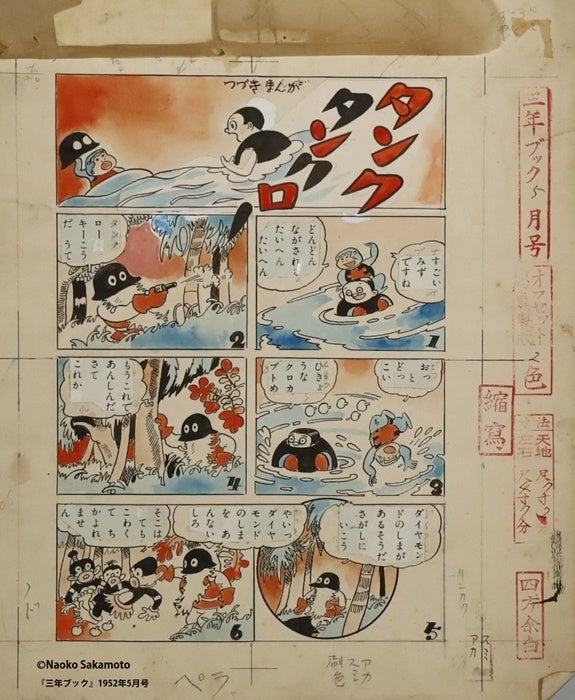 つづきまんが
タンク
タンク
ロー
すごい
みず
ですね
どんどん
ながされ
たいへん
たいへん
1
タンク
ロー
キーこう
だ うて
2
おっ
と
どっ
こい
ひきょ
うな
クロカ
ブトめ
3
もうこれで
あんしんだ
さて
これか
4
ダイヤモン
ドのしまが
あるそうだ
さがしに
いこう
5
やいっ
ダイヤ
モンド
のしま
をあ
んない
しろ
そこは
とても
こわく
てち
かよれ
ませ
ん
6
三年ブック5月号
オフセット2色
縮寫
天地
左右
四方余白
スミ
アカ
ペラ
©Naoko Sakamoto
『三年ブック』1952年5月号